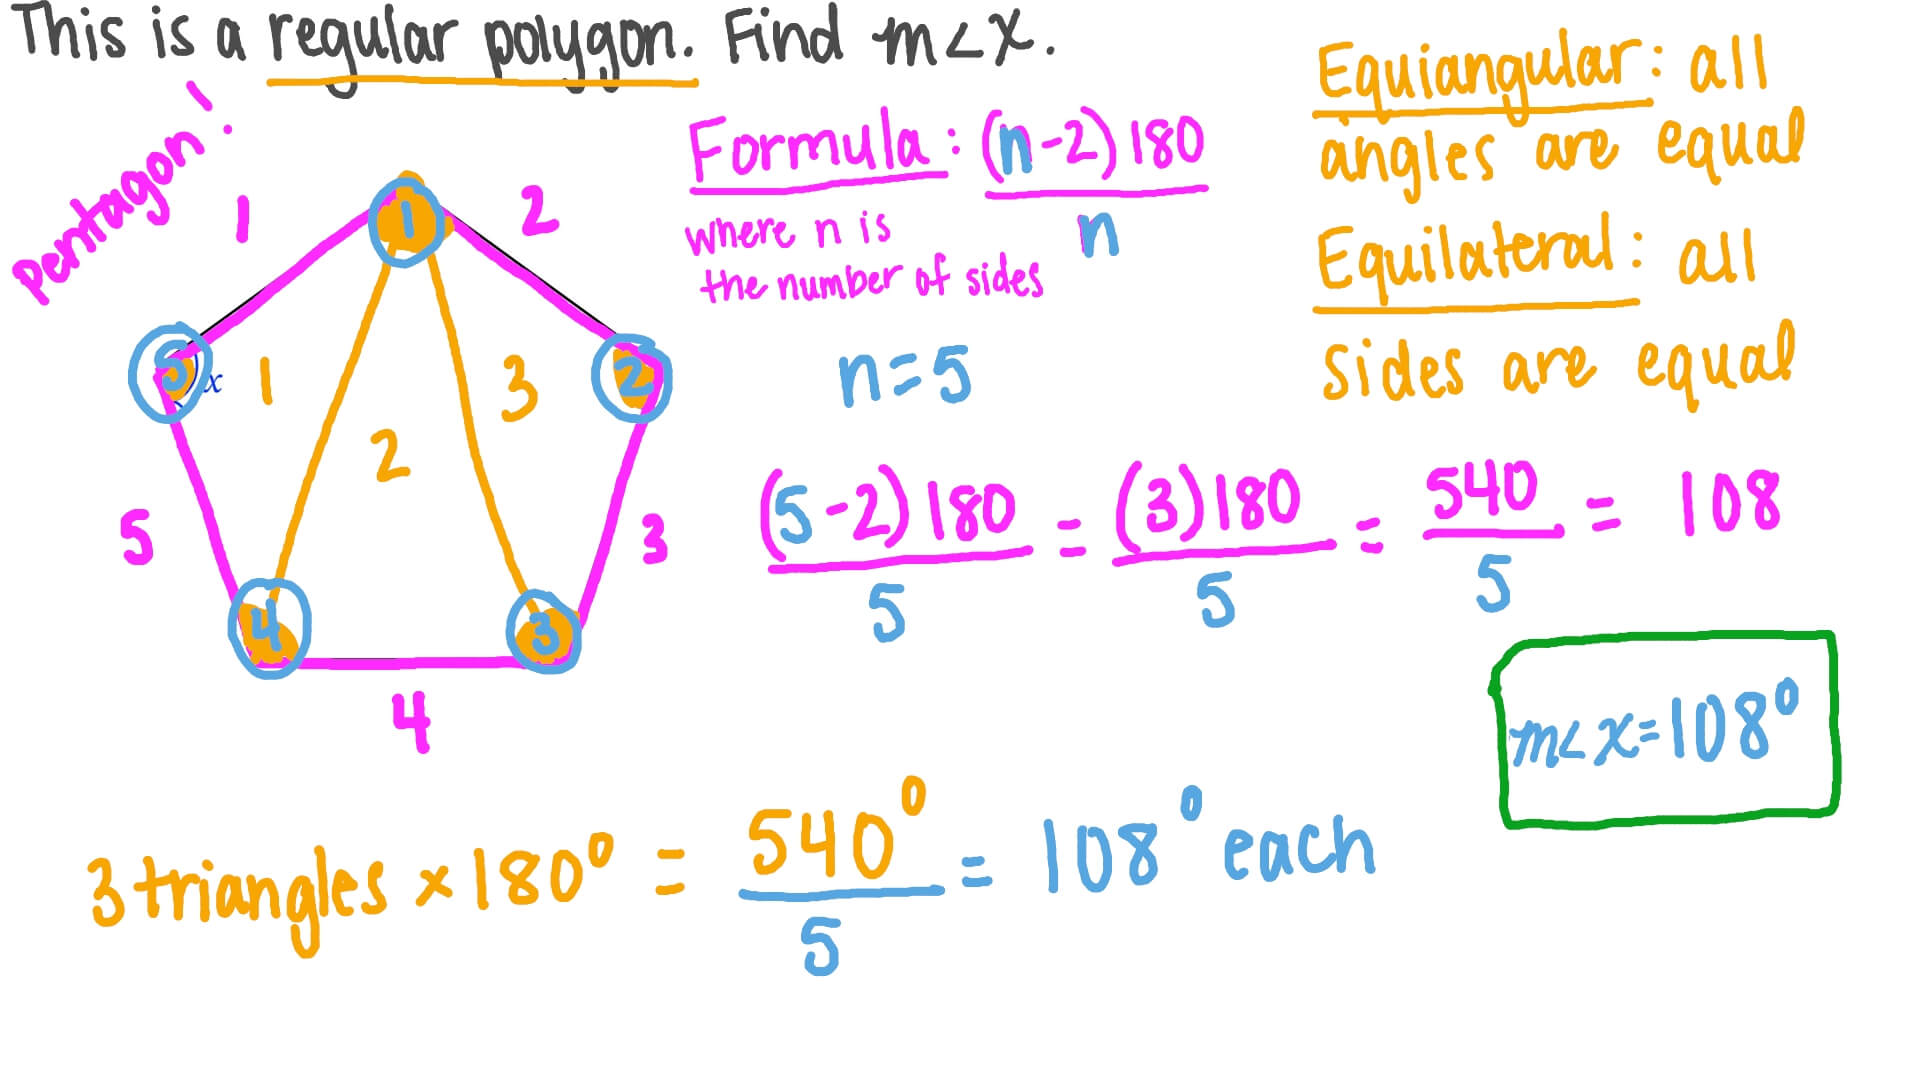 This is a regular polygon. Find m∠x.
Pentagon!
1
2
3
4
5
1
2
3
4
5
x
1
2
3
Formula: (n-2)180
n
where n is
the number of sides
n=5
Equiangular: all
angles are equal
Equilateral: all
sides are equal
(5-2)180 = (3)180 = 540 = 108
5 5 5
m∠x=108°
3 triangles × 180° = 540° = 108° each
5